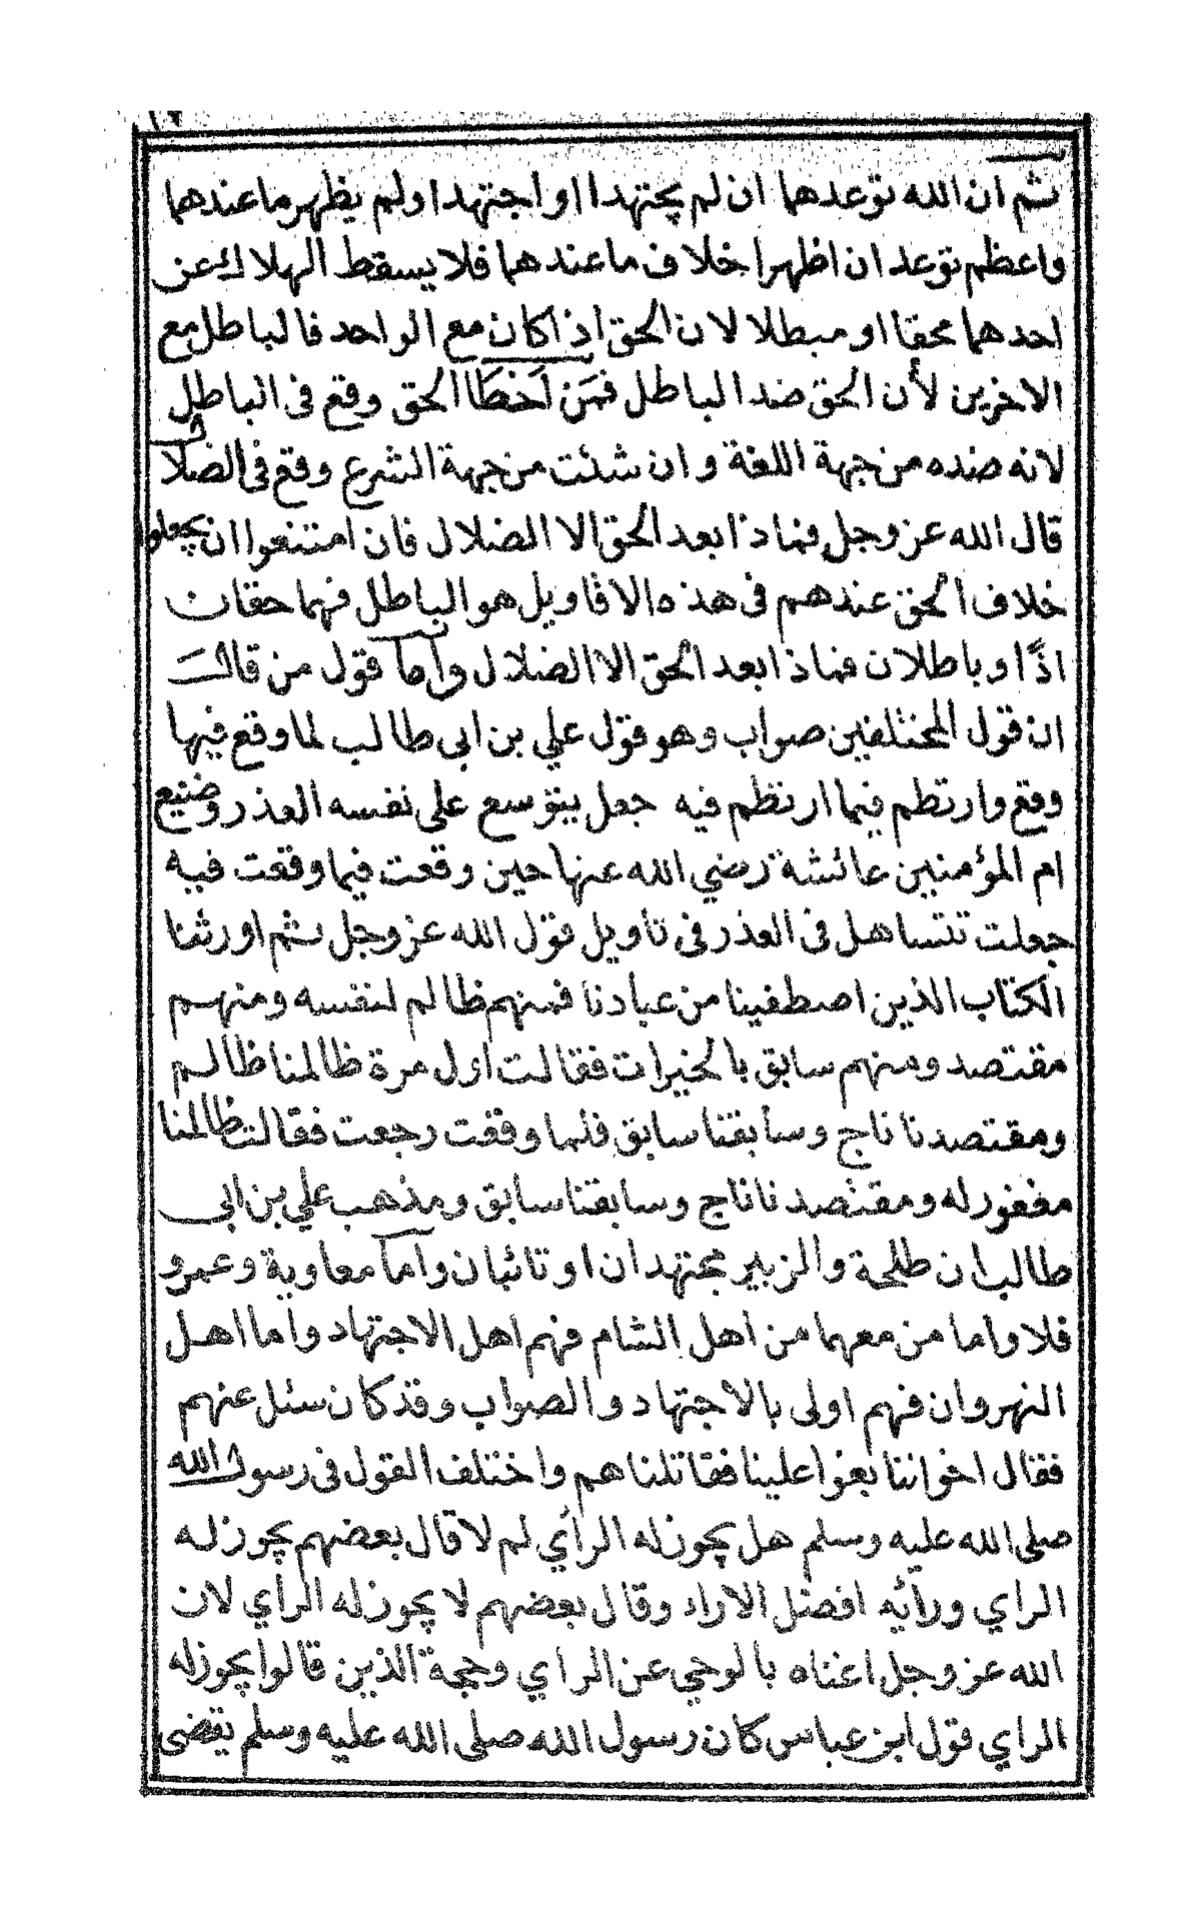 ١٧
ثم ان الله توعدهما ان لم يجتهدا او اجتهدا ولم يظهر ما عندهما
واعظم توعد ان اظهرا خلاف ما عندهما فلا يسقط الهلاك عن
احدهما محقا او مبطلا لان الحق اذا كان مع الواحد فالباطل مع
الاخرين لأن الحق ضد الباطل فمن أخطا الحق وقع في الباطل
لانه ضده من جهة اللغة وان شئت من جهة الشرع وقع في الضلال
قال الله عز وجل فماذا بعد الحق الا الضلال فان امتنعوا ان يجعلوا
خلاف الحق عندهم في هذه الاقاويل هو الباطل فهما حقان
اذًا وباطلان فماذا بعد الحق الا الضلال وأما قول من قال
ان قول المختلفين صواب وهو قول علي بن ابي طالب لما وقع فيها
وقع وارتطم فيما ارتطم فيه جعل يتوسع على نفسه العذر وصنيع
ام المؤمنين عائشة رضي الله عنها حين وقعت فيما وقعت فيه
جعلت تتساهل في العذر في تأويل قول الله عز وجل ثم اورثنا
الكتاب الذين اصطفينا من عبادنا فمنهم ظالم لنفسه ومنهم
مقتصد ومنهم سابق بالخيرات فقالت اول مرة ظالمنا ظالم
ومقتصدنا ناج وسابقنا سابق فلما وقعت رجعت فقالت ظالمنا
مغفور له ومقتصدنا ناج وسابقنا سابق ومذهب علي بن ابي
طالب ان طلحة والزبير مجتهدان او تائبان وأما معاوية وعمرو
فلا واما من معهما من اهل الشام فهم اهل الاجتهاد واما اهل
النهروان فهم اولى بالاجتهاد والصواب وقد كان سئل عنهم
فقال اخواننا بغوا علينا فقاتلناهم واختلف القول في رسول الله
صلى الله عليه وسلم هل يجوز له الرأي لم لا قال بعضهم يجوز له
الراي ورأيه افضل الاراد وقال بعضهم لا يجوز له الرأي لان
الله عز وجل اغناه بالوحي عن الراي وحجة الذين قالوا يجوز له
الراي قول ابن عباس كان رسول الله صلى الله عليه وسلم يقضى